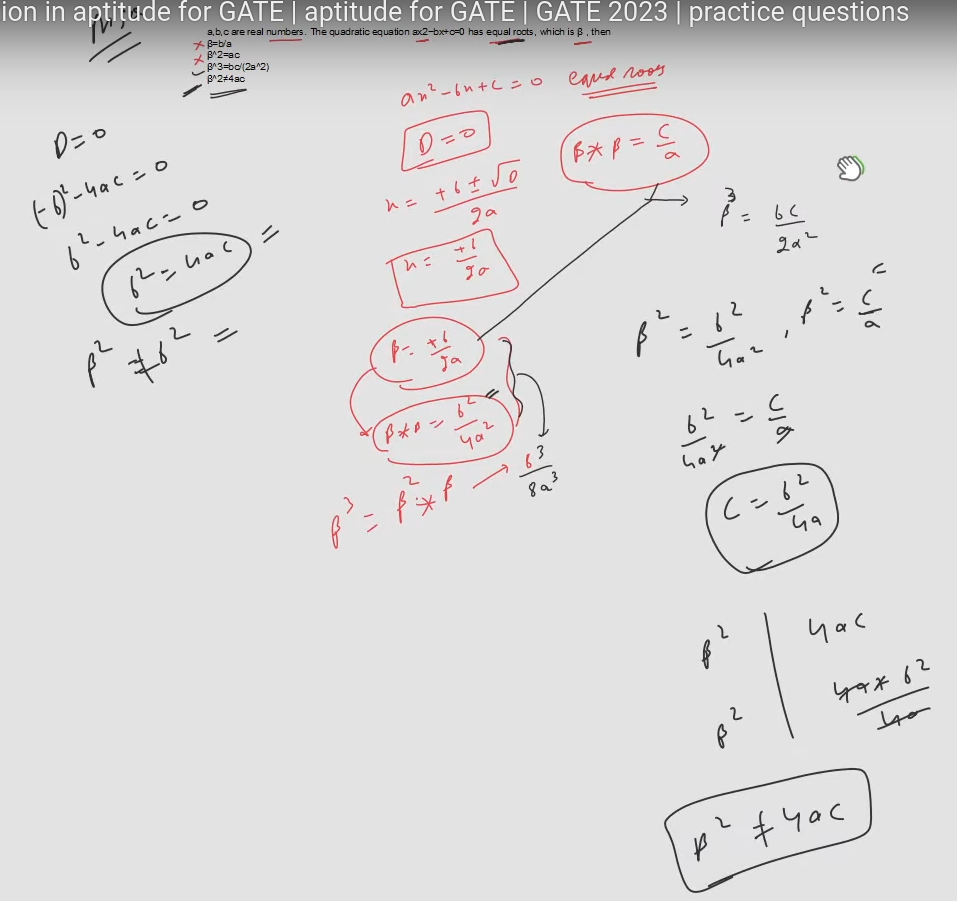 ion in aptitude for GATE | aptitude for GATE | GATE 2023 | practice questions
a,b,c are real numbers. The quadratic equation ax2−bx+c=0 has equal roots, which is β , then
β=b/a
β^2=ac
β^3=bc/(2a^2)
β^2≠4ac
ax² - bx + c = 0 equal roots
D = 0
x = +b ± √0 / 2a
x = +b / 2a
β = +b / 2a
β * β = b² / 4a²
β³ = β² * β → b³ / 8a³
β * β = c / a
D = 0
(-b)² - 4ac = 0
b² - 4ac = 0
b² = 4ac =
β² ≠ b² =
β³ = bc / 2a²
β² = b² / 4a² , β² = c / a
b² / 4a² = c / a
c = b² / 4a
β² | 4ac
β² | 4a * b² / 4a
β² ≠ 4ac